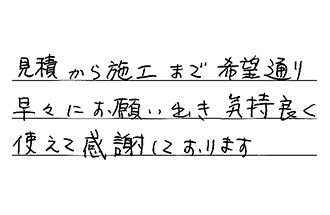 見積から施工まで希望通り
早々にお願い出き気持良く
使えて感謝しております